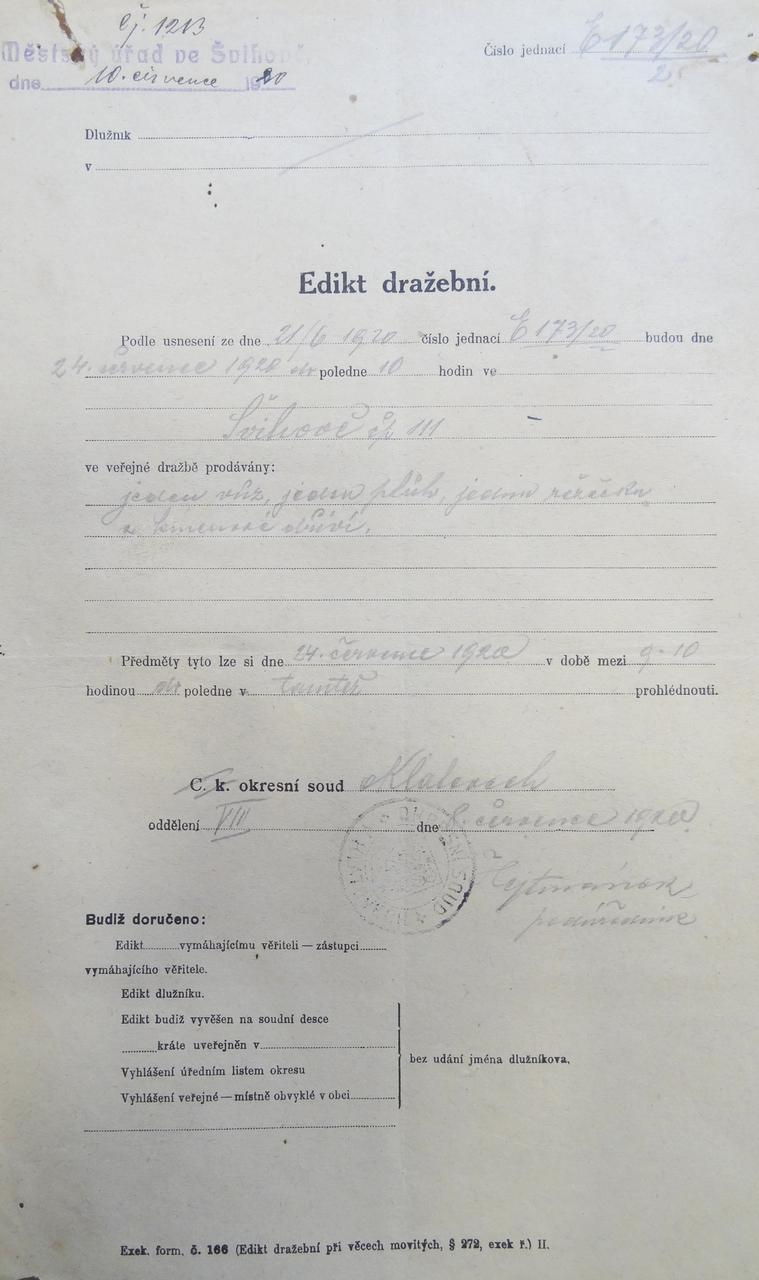 čj. 1213
Městský úřad ve Švihově,
dne 10. července 1920
Číslo jednací E 173/20
2
Dlužník
v
Edikt dražební.
Podle usnesení ze dne 21/6 1920 číslo jednací E 173/20 budou dne
24. července 1920 do poledne 10 hodin ve
Švihově čp. 111
ve veřejné dražbě prodávány:
jeden vůz, jeden pluh, jedna řezačka
a kmenové dříví.
Předměty tyto lze si dne 24. července 1920 v době mezi 9-10
hodinou do poledne v tamtéž prohlédnouti.
C. k. okresní soud Klatovech
oddělení VIII dne 8. července 1920
OKRESNÍ SOUD
Budiž doručeno:
Edikt vymáhajícímu věřiteli — zástupci
vymáhajícího věřitele.
Edikt dlužníku.
Edikt budiž vyvěšen na soudní desce
kráte uveřejněn v
bez udání jména dlužníkova.
Vyhlášení úředním listem okresu
Vyhlášení veřejné — místně obvyklé v obci
Exek. form. č. 166 (Edikt dražební při věcech movitých, § 272, exek ř.) II.